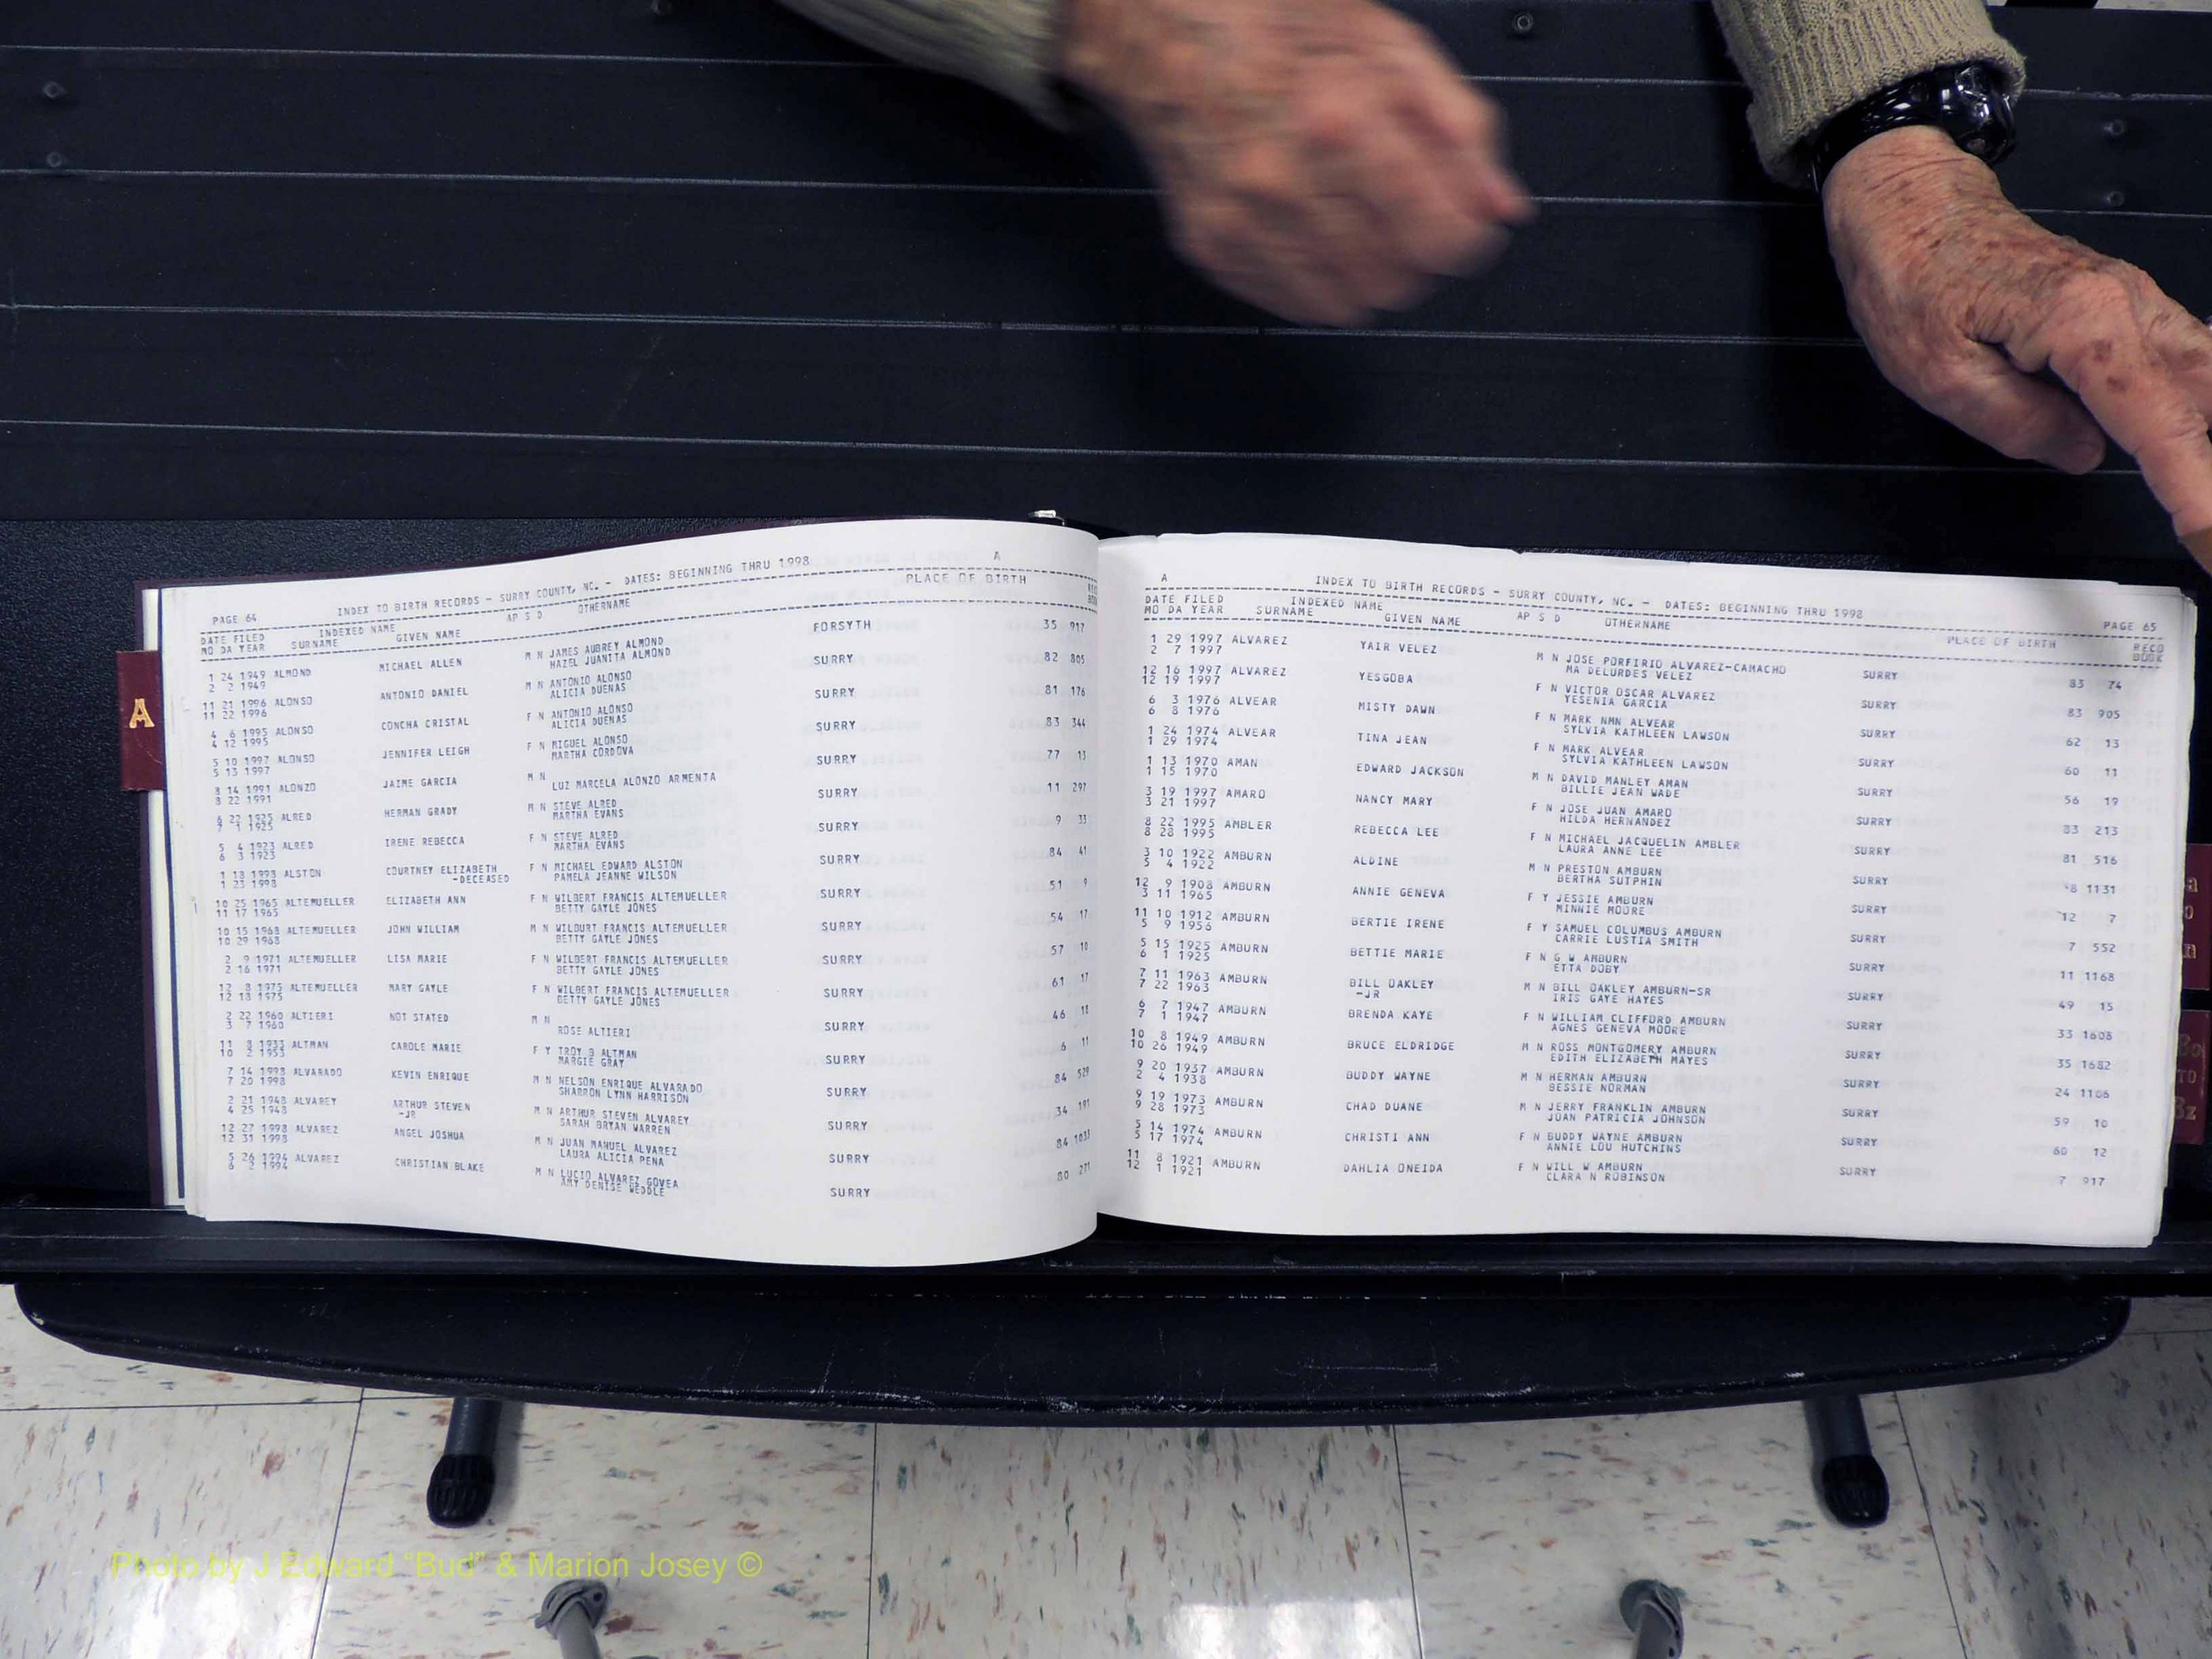 A
INDEX TO BIRTH RECORDS - SURRY COUNTY, NC. - DATES: BEGINNING THRU 1998
PAGE 64
DATE FILED INDEXED NAME AP S D OTHERNAME PLACE OF BIRTH
MO DA YEAR SURNAME GIVEN NAME
1 24 1949 ALMOND MICHAEL ALLEN M N JAMES AUBREY ALMOND FORSYTH 35 917
2 2 1949 HAZEL JUANITA ALMOND
11 21 1996 ALONSO ANTONIO DANIEL M N ANTONIO ALONSO SURRY 82 805
11 22 1996 ALICIA DUENAS
4 6 1995 ALONSO CONCHA CRISTAL F N ANTONIO ALONSO SURRY 81 176
4 12 1995 ALICIA DUENAS
5 10 1997 ALONSO JENNIFER LEIGH F N MIGUEL ALONSO SURRY 83 344
5 13 1997 MARTHA CORDOVA
8 14 1991 ALONZO JAIME GARCIA M N SURRY 77 13
8 22 1991 LUZ MARCELA ALONZO ARMENTA
6 22 1925 ALRED HERMAN GRADY M N STEVE ALRED SURRY 11 297
7 1 1925 MARTHA EVANS
5 4 1923 ALRED IRENE REBECCA F N STEVE ALRED SURRY 9 33
6 3 1923 MARTHA EVANS
1 18 1998 ALSTON COURTNEY ELIZABETH F N MICHAEL EDWARD ALSTON SURRY 84 41
1 23 1998 -DECEASED PAMELA JEANNE WILSON
10 25 1965 ALTEMUELLER ELIZABETH ANN F N WILBERT FRANCIS ALTEMUELLER SURRY 51 9
11 17 1965 BETTY GAYLE JONES
10 15 1968 ALTEMUELLER JOHN WILLIAM M N WILBURT FRANCIS ALTEMUELLER SURRY 54 17
10 29 1968 BETTY GAYLE JONES
2 9 1971 ALTEMUELLER LISA MARIE F N WILBERT FRANCIS ALTEMUELLER SURRY 57 10
2 16 1971 BETTY GAYLE JONES
12 8 1975 ALTEMUELLER MARY GAYLE F N WILBERT FRANCIS ALTEMUELLER SURRY 61 17
12 18 1975 BETTY GAYLE JONES
2 22 1960 ALTIERI NOT STATED M N SURRY 46 18
3 7 1960 ROSE ALTIERI
11 8 1933 ALTMAN CAROLE MARIE F Y TROY B ALTMAN SURRY 6 11
10 2 1953 MARGIE GRAY
7 14 1998 ALVARADO KEVIN ENRIQUE M N NELSON ENRIQUE ALVARADO SURRY 84 529
7 20 1998 SHARRON LYNN HARRISON
2 21 1948 ALVAREY ARTHUR STEVEN M N ARTHUR STEVEN ALVAREY SURRY 34 191
4 25 1948 -JR SARAH BRYAN WARREN
12 27 1998 ALVAREZ ANGEL JOSHUA M N JUAN MANUEL ALVAREZ SURRY 84 1033
12 31 1998 LAURA ALICIA PENA
5 26 1994 ALVAREZ CHRISTIAN BLAKE M N LUCIO ALVAREZ GOVEA SURRY 80 271
6 2 1994 AMY DENISE WEDDLE
A
INDEX TO BIRTH RECORDS - SURRY COUNTY, NC. - DATES: BEGINNING THRU 1998
PAGE 65
DATE FILED INDEXED NAME AP S D OTHERNAME PLACE OF BIRTH RECO
MO DA YEAR SURNAME GIVEN NAME BOOK
1 29 1997 ALVAREZ YAIR VELEZ M N JOSE PORFIRIO ALVAREZ-CAMACHO SURRY 83 74
2 7 1997 MA DELURDES VELEZ
12 16 1997 ALVAREZ YESGOBA F N VICTOR OSCAR ALVAREZ SURRY 83 905
12 19 1997 YESENIA GARCIA
6 3 1976 ALVEAR MISTY DAWN F N MARK NMN ALVEAR SURRY 62 13
6 8 1976 SYLVIA KATHLEEN LAWSON
1 24 1974 ALVEAR TINA JEAN F N MARK ALVEAR SURRY 60 11
1 29 1974 SYLVIA KATHLEEN LAWSON
1 13 1970 AMAN EDWARD JACKSON M N DAVID MANLEY AMAN SURRY 56 19
1 15 1970 BILLIE JEAN WADE
3 19 1997 AMARO NANCY MARY F N JOSE JUAN AMARO SURRY 83 213
3 21 1997 HILDA HERNANDEZ
8 22 1995 AMBLER REBECCA LEE F N MICHAEL JACQUELIN AMBLER SURRY 81 516
8 28 1995 LAURA ANNE LEE
3 10 1922 AMBURN ALDINE M N PRESTON AMBURN SURRY 8 1131
5 4 1922 BERTHA SUTPHIN
12 9 1908 AMBURN ANNIE GENEVA F Y JESSIE AMBURN SURRY 12 7
3 11 1965 MINNIE MOORE
11 10 1912 AMBURN BERTIE IRENE F Y SAMUEL COLUMBUS AMBURN SURRY 7 552
5 9 1956 CARRIE LUSTIA SMITH
5 15 1925 AMBURN BETTIE MARIE F N G W AMBURN SURRY 11 1168
6 1 1925 ETTA DOBY
7 11 1963 AMBURN BILL OAKLEY M N BILL OAKLEY AMBURN-SR SURRY 49 15
7 22 1963 -JR IRIS GAYE HAYES
6 7 1947 AMBURN BRENDA KAYE F N WILLIAM CLIFFORD AMBURN SURRY 33 1608
7 1 1947 AGNES GENEVA MOORE
10 8 1949 AMBURN BRUCE ELDRIDGE M N ROSS MONTGOMERY AMBURN SURRY 35 1682
10 26 1949 EDITH ELIZABETH MAYES
9 20 1937 AMBURN BUDDY WAYNE M N HERMAN AMBURN SURRY 24 1106
2 4 1938 BESSIE NORMAN
9 19 1973 AMBURN CHAD DUANE M N JERRY FRANKLIN AMBURN SURRY 59 10
9 28 1973 JOAN PATRICIA JOHNSON
5 14 1974 AMBURN CHRISTI ANN F N BUDDY WAYNE AMBURN SURRY 60 12
5 17 1974 ANNIE LOU HUTCHINS
11 8 1921 AMBURN DAHLIA ONEIDA F N WILL W AMBURN SURRY 7 917
12 1 1921 CLARA N ROBINSON
A
TO
Photo by J Edward “Bud” & Marion Josey ©